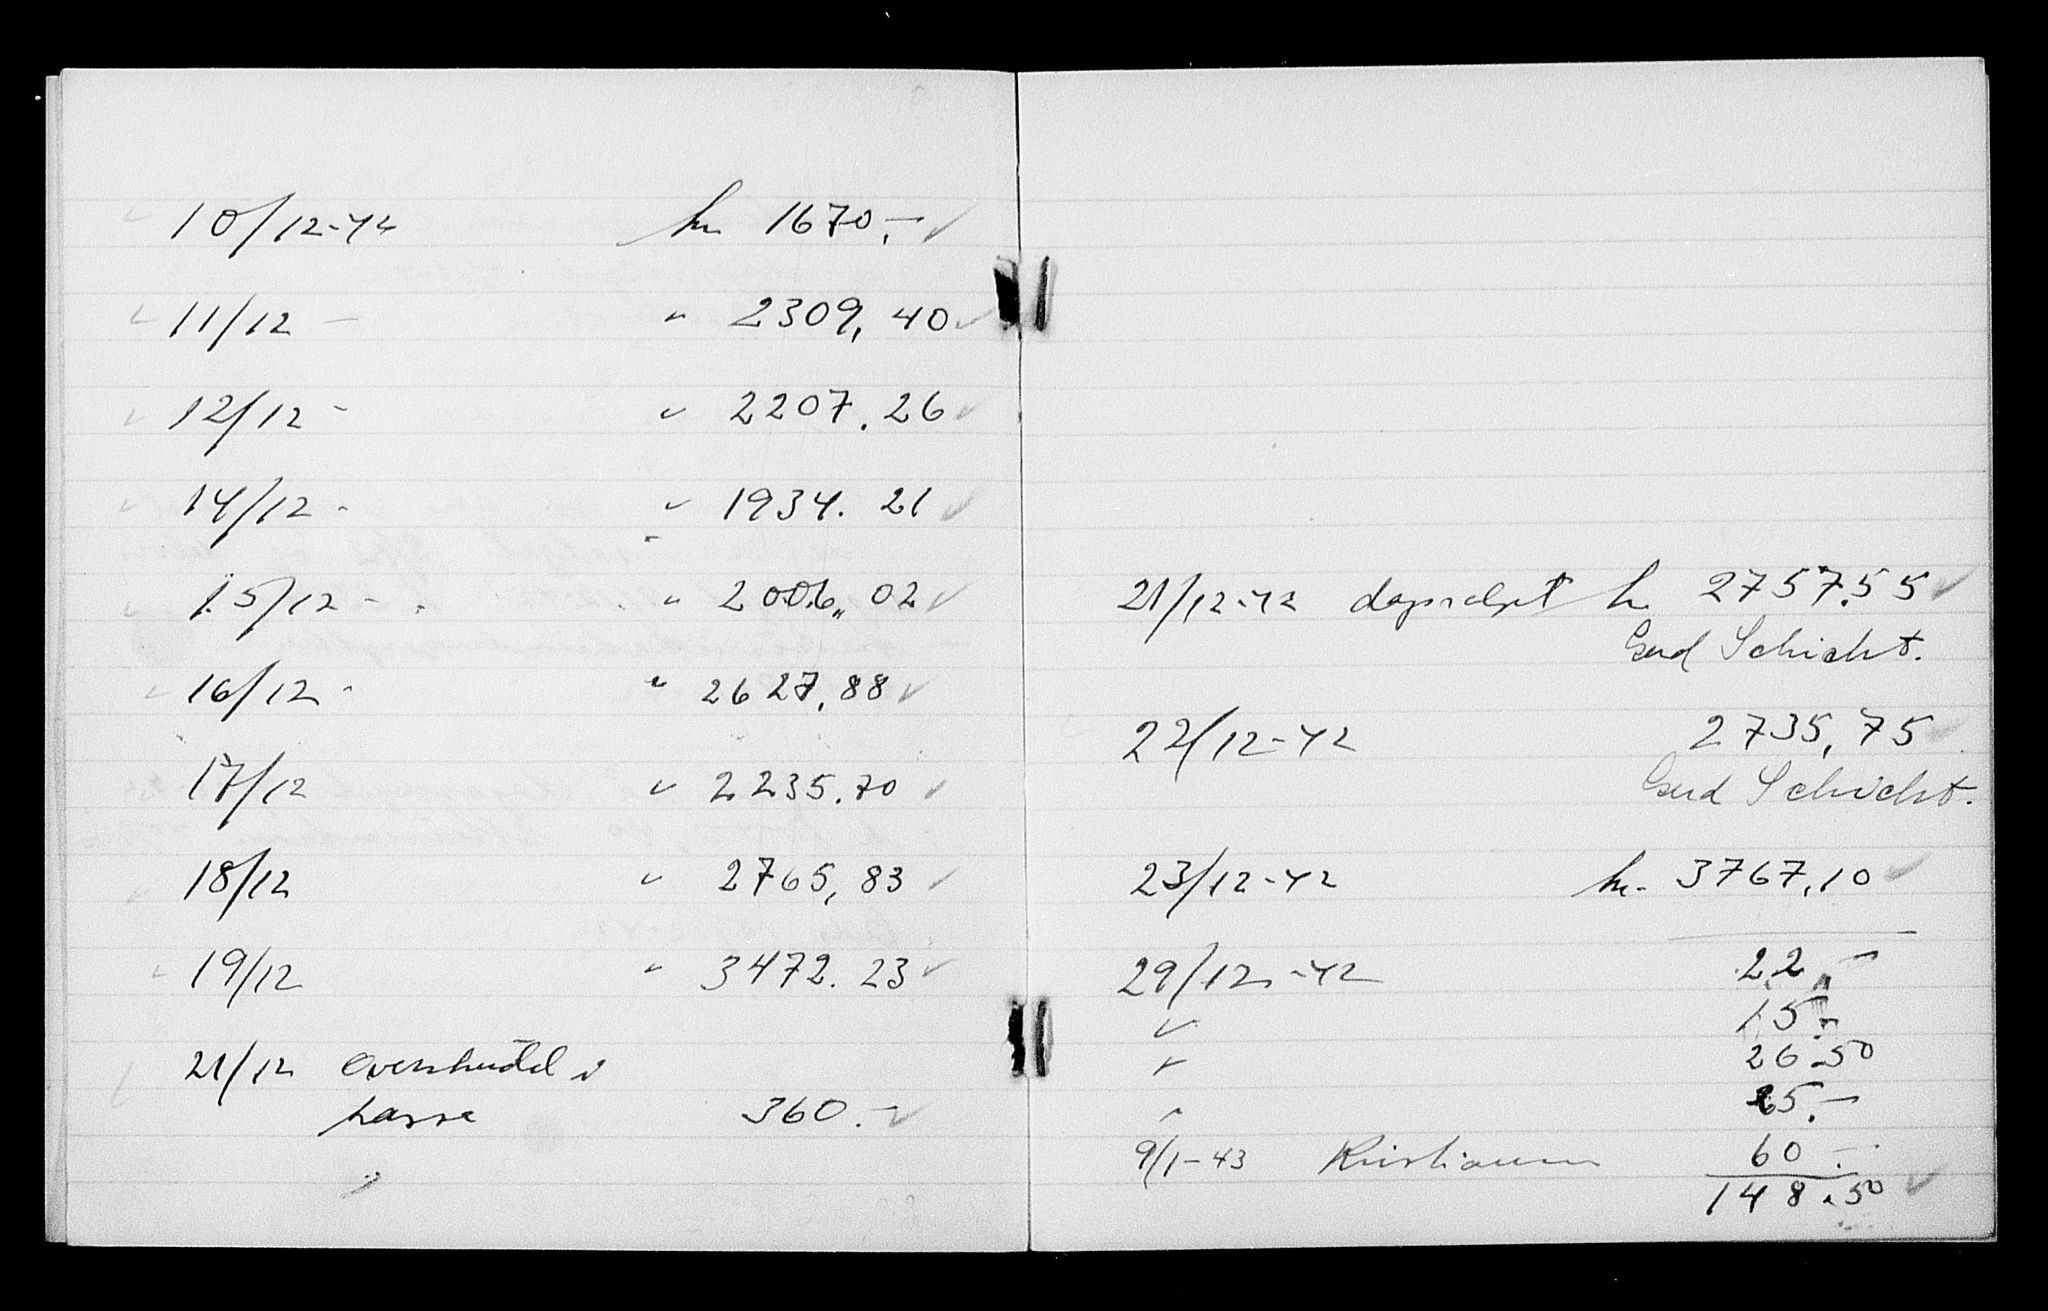 10/12-42 kr 1670,-
11/12 - " 2309,40
12/12 - " 2207.26
14/12 - " 1934.21
15/12 - " 2006,02
16/12 - " 2627,88
17/12 " 2235.70
18/12 " 2765,83
19/12 " 3472.23
21/12 overskudd i
kasse 360.-
21/12-42 dagsalget kr 2757.55
Gerd Schicht.
22/12-42 2735,75
Gerd Schicht.
23/12-42 kr. 3767,10
29/12-42 22,-
" 15.-
" 26.50
" 25.-
9/1-43 Kristiansen 60.-
148.50